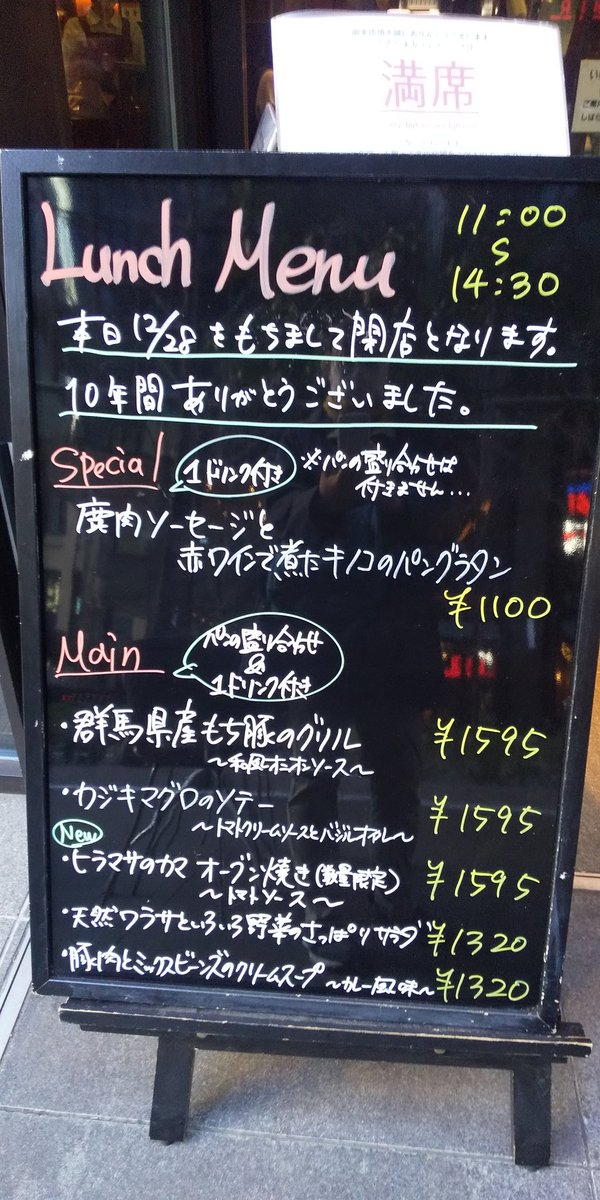 満席
Lunch Menu
11:00
〜
14:30
本日12/28をもちまして閉店となります。
10年間ありがとうございました。
Special
1ドリンク付き
※パンの盛り合わせは
付きません...
鹿肉ソーセージと
赤ワインで煮たキノコのパングラタン
¥1100
Main
パンの盛り合わせ
&
1ドリンク付き
・群馬県産もち豚のグリル ¥1595
〜和風オニオンソース〜
・カジキマグロのソテー ¥1595
〜トマトクリームソースとバジルオイル〜
New
・ヒラマサのカマ オーブン焼き(数量限定) ¥1595
〜トマトソース〜
・天然ワラサといろいろ野菜のさっぱりサラダ ¥1320
・豚肉とミックスビーンズのクリームスープ 〜カレー風味〜 ¥1320